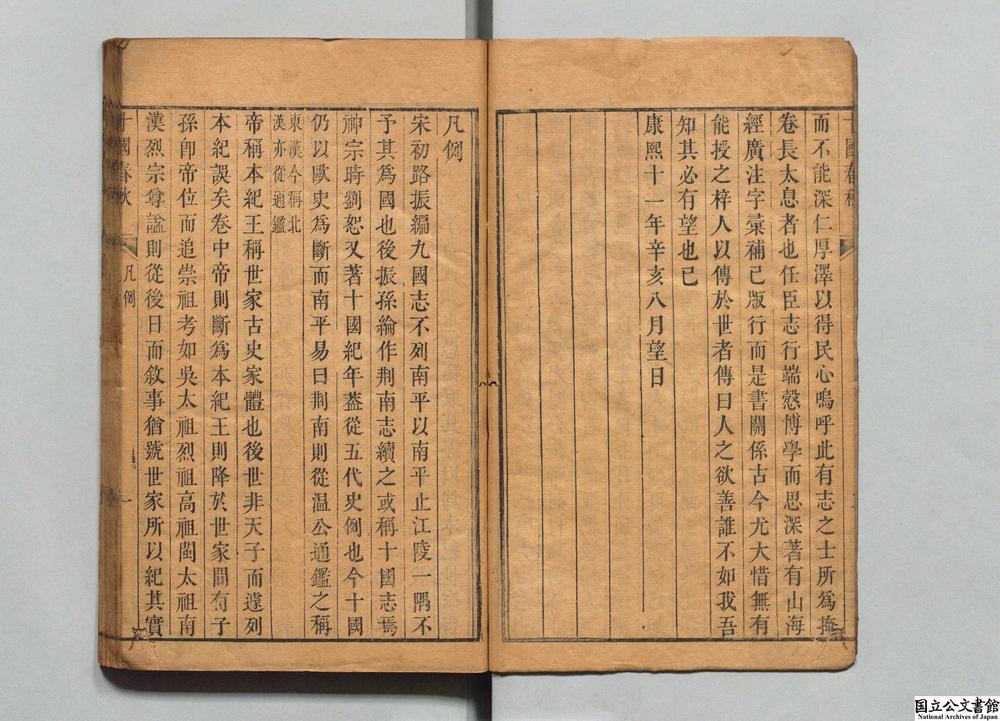 而不能深仁厚澤以得民心嗚呼此有志之士所為掩
卷長太息者也任臣志行端慤博學而思深著有山海
經廣注字彙補已版行而是書關係古今尤大惜無有
能授之梓人以傳於世者傳曰人之欲善誰不如我吾
知其必有望也已
康熙十一年辛亥八月望日
凡例
宋初路振編九國志不列南平以南平止江陵一隅不
予其為國也後振孫綸作荆南志續之或稱十國志焉
神宗時劉恕又著十國紀年葢從五代史例也今十國
仍以歐史為斷而南平易曰荆南則從温公通鑑之稱
東漢今稱北
漢亦從通鑑
帝稱本紀王稱世家古史家體也後世非天子而遽列
本紀誤矣卷中帝則斷為本紀王則降於世家間有子
孫卽帝位而追崇祖考如吳太祖烈祖高祖閩太祖南
漢烈宗尊謚則從後日而敘事猶號世家所以紀其實
十國春秋
凡例
一
国立公文書館
National Archives of Japan